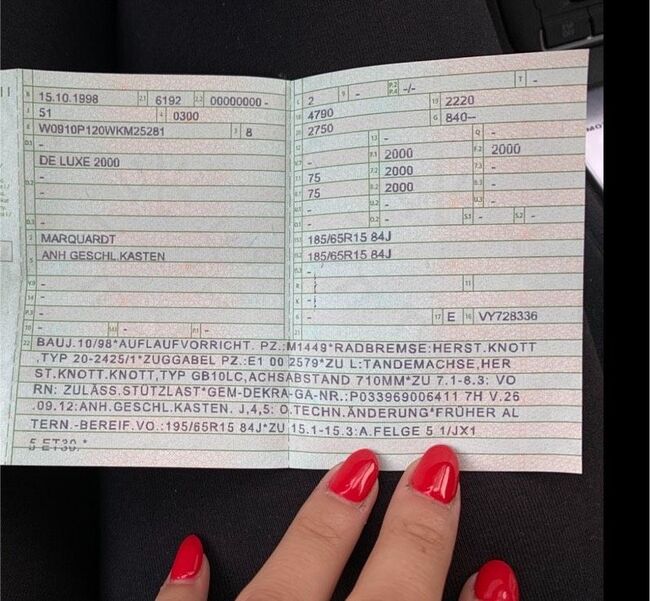 B 15.10.1998 2.1 6192 2.2 00000000 -
J 51 4 0300
E W0910P120WKM25281 3 8
D.1 -
DE LUXE 2000
D.2 -
-
-
D.3 -
2 MARQUARDT
5 ANH GESCHL.KASTEN
V.9 -
14 -
P.3 -
10 - 14.1 - P.1 -
L 2 9 - P.2 P.4 -/- T -
18 4790 19 2220
20 2750 G 840--
12 - 13 - Q -
V.7 - F.1 2000 F.2 2000
7.1 75 7.2 2000 7.3 -
8.1 75 8.2 2000 8.3 -
U.1 - U.2 - U.3 -
O.1 - O.2 - S.1 - S.2 -
15.1 185/65R15 84J
15.2 185/65R15 84J
15.3 -
R - 11
K -
6 - 17 E 16 VY728336
21 -
22 BAUJ.10/98*AUFLAUFVORRICHT. PZ.:M1449*RADBREMSE:HERST.KNOTT
,TYP 20-2425/1*ZUGGABEL PZ.:E1 00 2579*ZU L:TANDEMACHSE,HER
ST.KNOTT.KNOTT,TYP GB10LC,ACHSABSTAND 710MM*ZU 7.1-8.3: VO
RN: ZULÄSS.STÜTZLAST*GEM-DEKRA-GA-NR.:P033969006411 7H V.26
.09.12:ANH.GESCHL.KASTEN. J,4,5: O.TECHN.ÄNDERUNG*FRÜHER AL
TERN.-BEREIF.VO.:195/65R15 84J*ZU 15.1-15.3:A.FELGE 5 1/JX1
5 ET30.*